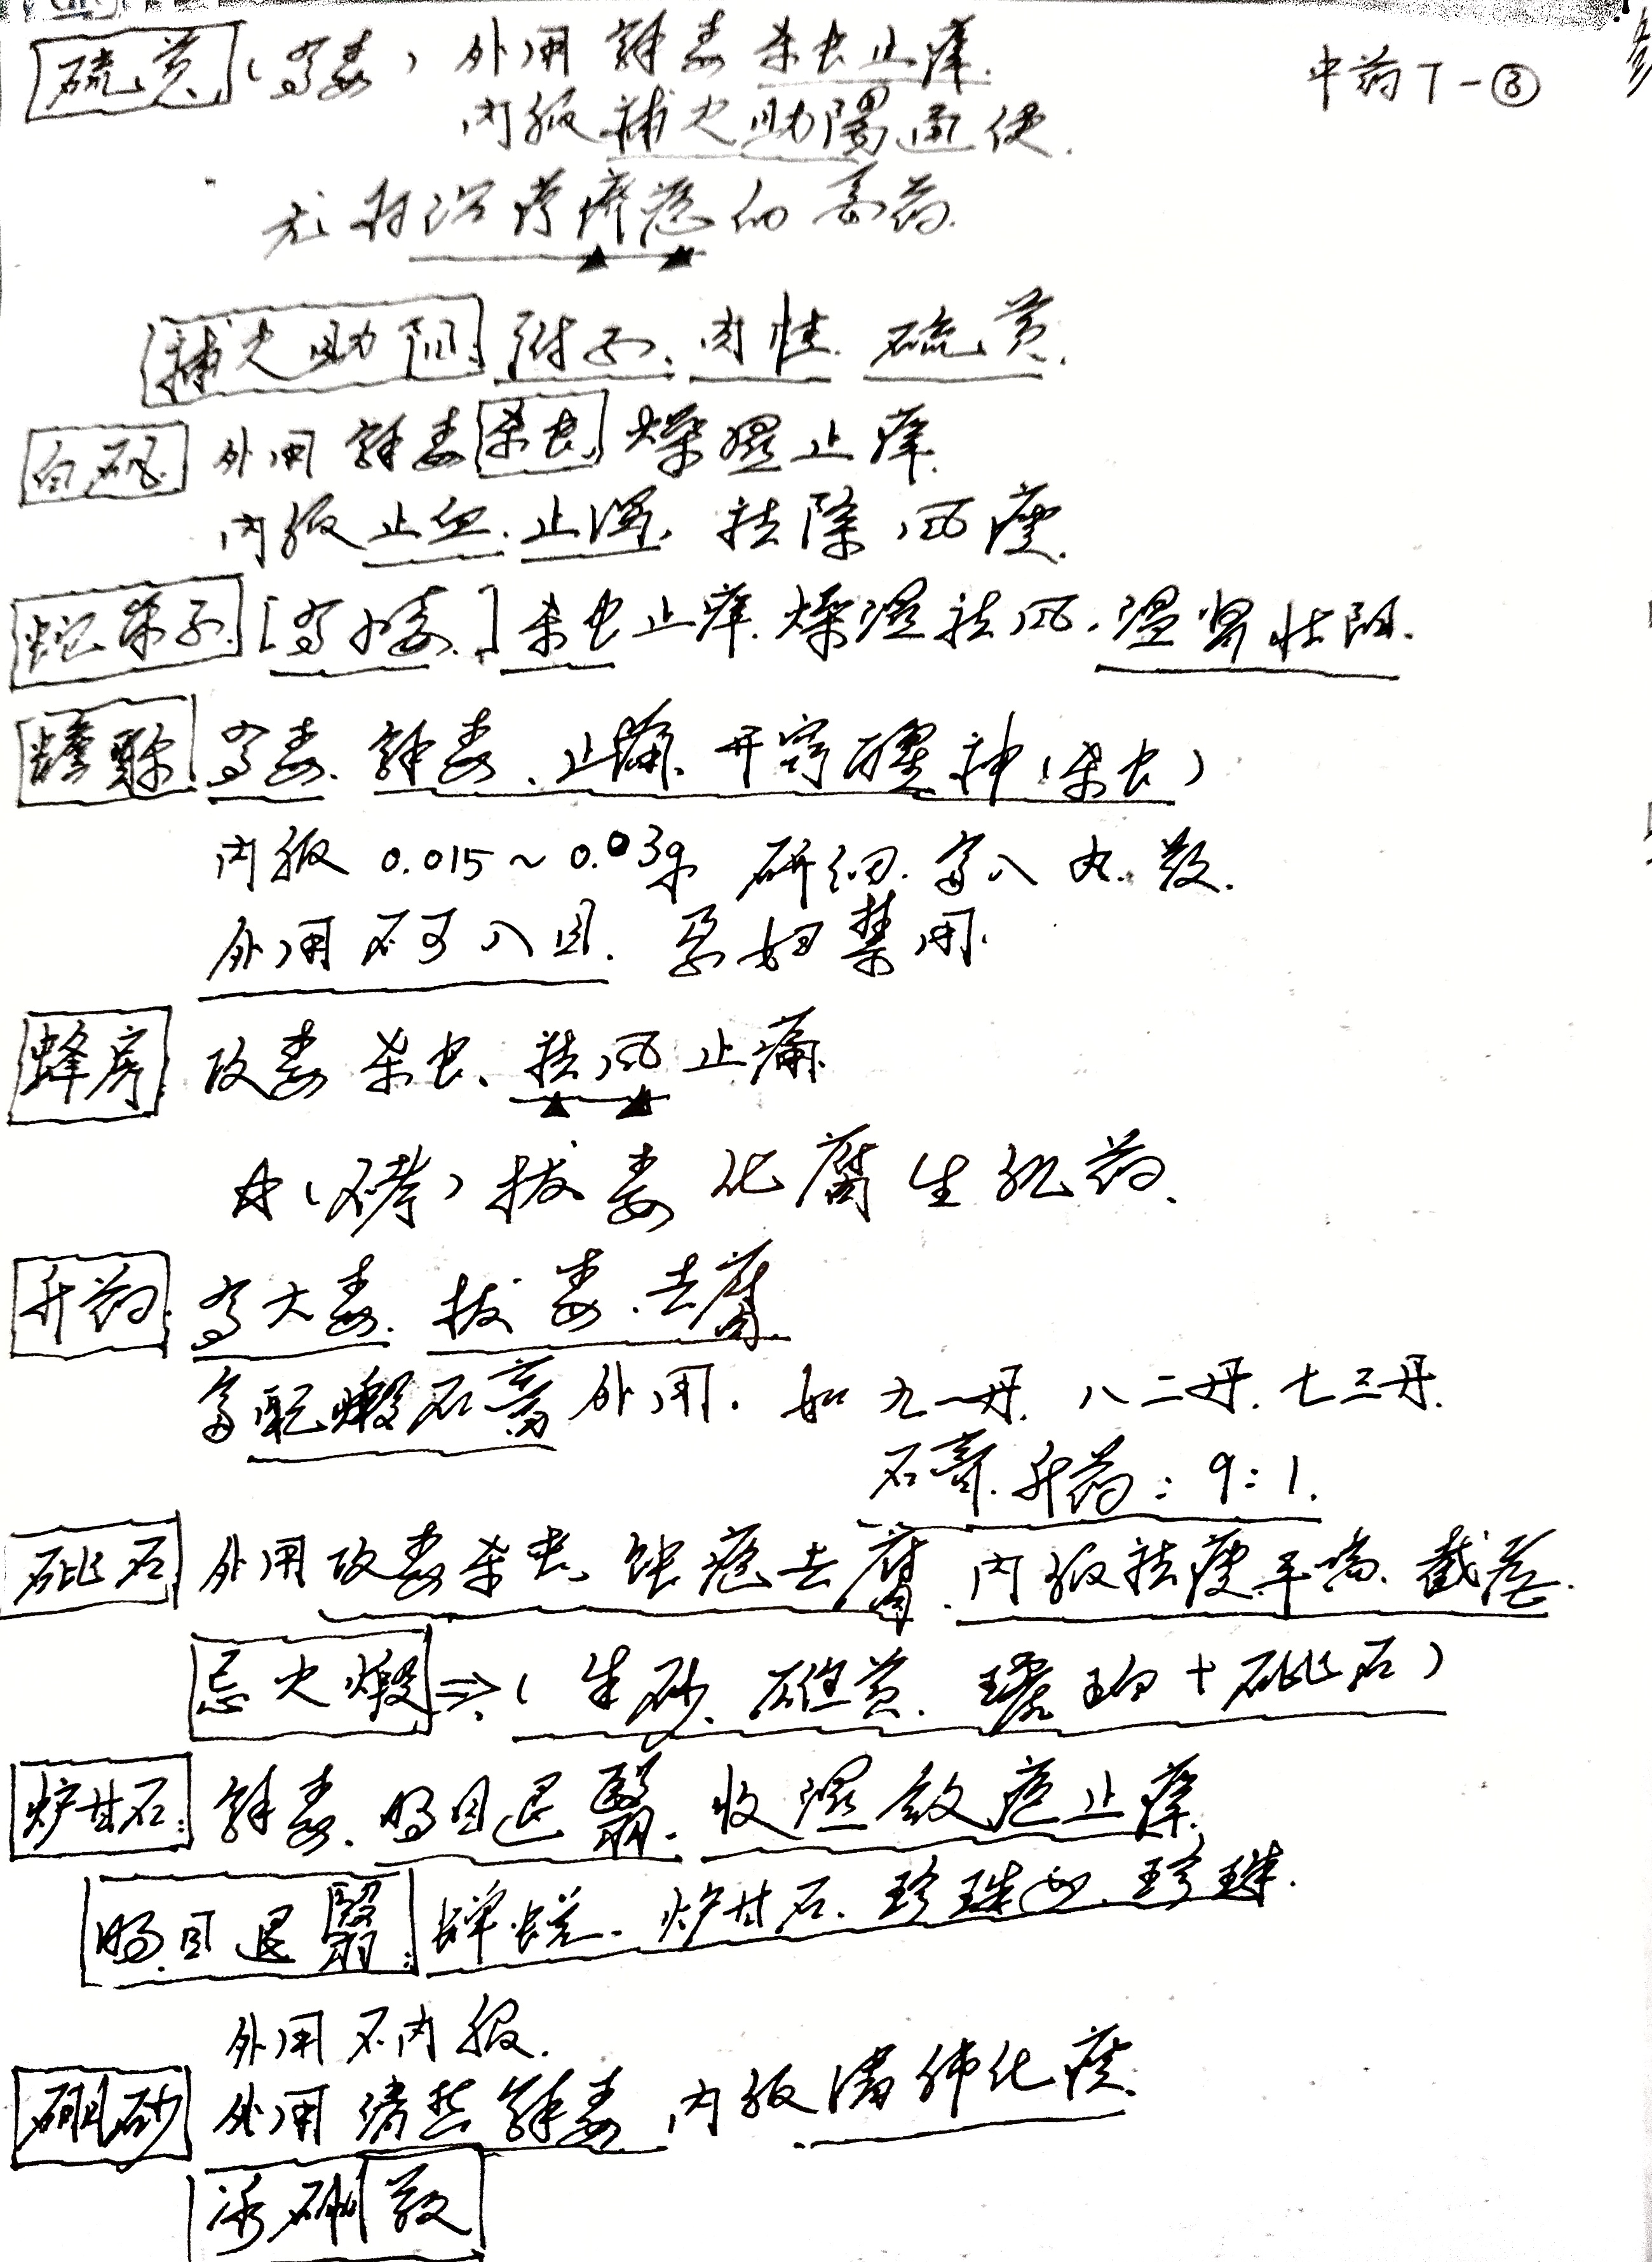 中药T-③
硫黄(有毒) 外用解毒杀虫止痒.
内服補火助陽通便.
尤为治疗疥疮的要药.
補火助阳: 附子. 肉桂. 硫黄.
白矾. 外用解毒杀虫, 燥湿止痒.
内服止血. 止泻, 祛除风痰.
蛇床子.[有小毒.] 杀虫止痒. 燥湿祛风. 温肾壮阳.
蟾酥: 有毒. 解毒、止痛. 开窍醒神(杀虫)
内服 0.015~0.03g 研细. 多入丸. 散.
外用不可入目. 孕妇禁用.
蜂房: 攻毒杀虫、祛风止痛.
☆(不考) 拔毒化腐生肌药.
升药: 有大毒. 拔毒. 去腐.
多配煅石膏外用. 如九一丹. 八二丹. 七三丹.
石膏. 升药: 9:1.
砒石: 外用攻毒杀虫、蚀疮去腐. 内服祛痰平喘. 截疟.
忌火煅⇒(朱砂. 雄黄. 琥珀+砒石)
炉甘石: 解毒. 明目退翳. 收湿敛疮止痒.
明目退翳: 蝉蜕. 炉甘石. 珍珠母. 珍珠.
外用不内服.
硼砂 外用清热解毒, 内服清肺化痰.
冰硼散